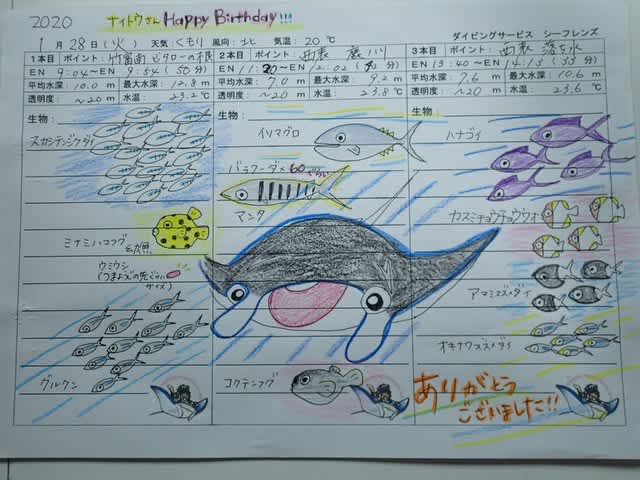 2020 ナイトウさん Happy Birthday!!!
1月28日(火) 天気:くもり 風向:北 気温:20℃ ダイビングサービス シーフレンズ
1本目 ポイント:竹富南 ビタローの根
EN 9:04~EN 9:54 (50分)
平均水深:10.0m 最大水深:12.8m
透明度:~20m 水温:23.2℃
生物:
スカシテンジクダイ
ミナミハコフグ 幼魚
ウミウシ
(つまようじの先ぐらい
サイズ)
グルクン
2本目 ポイント:西表 鹿川
~EN 12:02
平均水深:7.0m 最大水深:9.2m
透明度:~20m 水温:23.8℃
生物:
イソマグロ
バラクーダ×60ぐらい
マンタ
コクテンフグ
3本目 ポイント:西表 落水
EN 13:40~EN 14:13 (33分)
平均水深:7.6m 最大水深:10.6m
透明度:~20m 水温:23.6℃
生物:
ハナゴイ
カスミチョウチョウウオ
アマミスズメダイ
オキナワスズメダイ
ありがとう
ございました!!